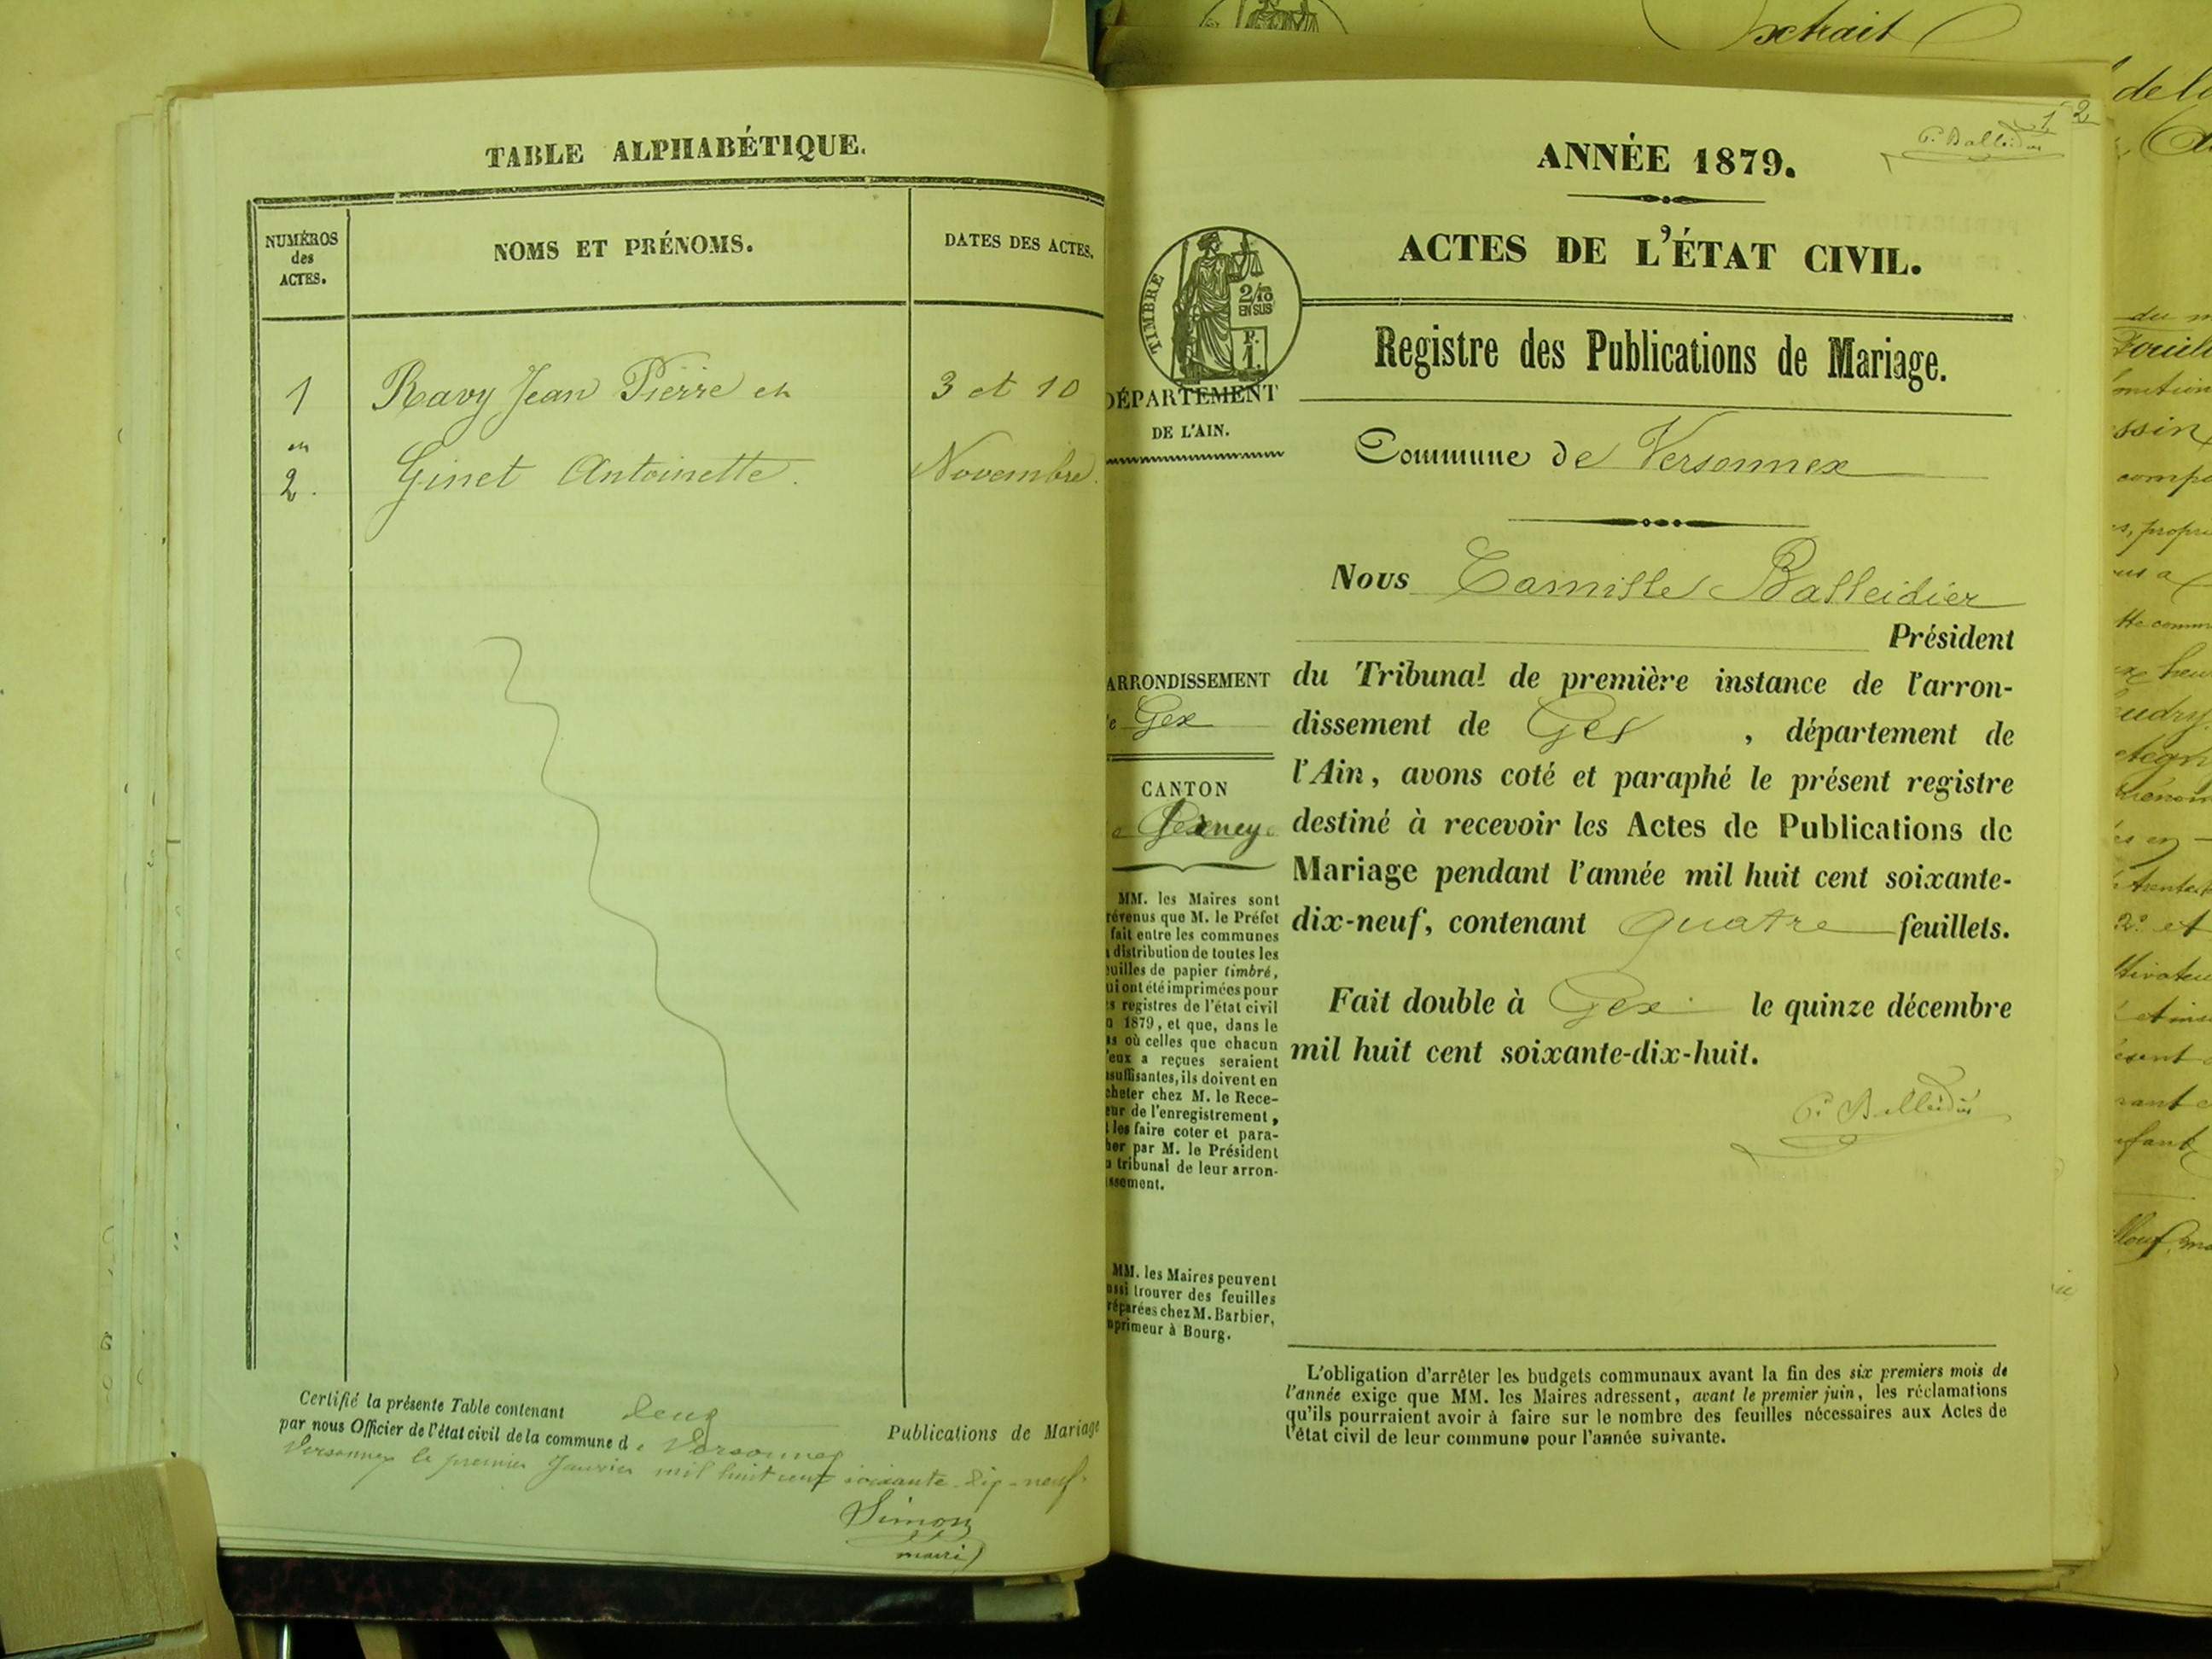 TABLE ALPHABÉTIQUE.
NUMÉROS
des
ACTES.
NOMS ET PRÉNOMS.
DATES DES ACTES.
1 Ravy Jean Pierre et 3 et 10
et
2. Ginet Antoinette. Novembre.
Certifié la présente Table contenant deux
Publications de Mariage
par nous Officier de l'état civil de la commune de Versonnex
Versonnex le premier Janvier mil huit cent soixante-dix-neuf.
Simon
maire
xtrait
1 2
ANNÉE 1879.
ACTES DE L'ÉTAT CIVIL.
TIMBRE
2/10
EN SUS
F.
1.
Registre des Publications de Mariage.
DÉPARTEMENT
DE L'AIN.
Commune de Versonnex
Nous Camille Balleidier
Président
du Tribunal de première instance de l'arron-
dissement de Gex, département de
l'Ain, avons coté et paraphé le présent registre
destiné à recevoir les Actes de Publications de
Mariage pendant l'année mil huit cent soixante-
dix-neuf, contenant quatre feuillets.
Fait double à Gex le quinze décembre
mil huit cent soixante-dix-huit.
C. Balleidier
ARRONDISSEMENT
e Gex
CANTON
MM. les Maires sont
révenus que M. le Préfet
fait entre les communes
a distribution de toutes les
euilles de papier timbré,
ui ont été imprimées pour
es registres de l'état civil
n 1879, et que, dans le
as où celles que chacun
'eux a reçues seraient
nsuffisantes, ils doivent en
cheter chez M. le Rece-
eur de l'enregistrement,
t les faire coter et para-
her par M. le Président
u tribunal de leur arron-
issement.
MM. les Maires peuvent
ussi trouver des feuilles
réparées chez M. Barbier,
mprimeur à Bourg.
L'obligation d'arrêter les budgets communaux avant la fin des six premiers mois de
l'année exige que MM. les Maires adressent, avant le premier juin, les réclamations
qu'ils pourraient avoir à faire sur le nombre des feuilles nécessaires aux Actes de
l'état civil de leur commune pour l'année suivante.